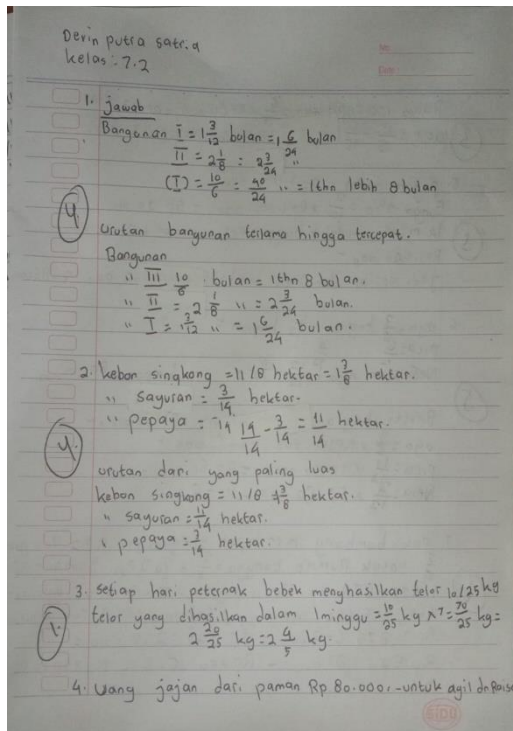 Derin putra satria
kelas : 7.2
No:
Date:
1. jawab
Bangunan I = 1 3/12 bulan = 1 6/24 bulan
II = 2 1/8 = 2 3/24 "
(I) = 10/6 = 40/24 " = 1 thn lebih 8 bulan
4.
urutan bangunan terlama hingga tercepat.
Bangunan
" III 10/6 bulan = 1 thn 8 bulan.
" II = 2 1/8 " = 2 3/24 bulan.
" I = 1 3/12 " = 1 6/24 bulan.
2. kebon singkong = 11/8 hektar = 1 3/8 hektar.
" sayuran = 3/14 hektar.
" pepaya = 14 14/14 - 3/14 = 11/14 hektar.
4.
urutan dari yang paling luas
kebon singkong = 11/8 1 3/8 hektar.
" sayuran = 11/14 hektar.
" pepaya = 3/14 hektar.
3. setiap hari peternak bebek menghasilkan telor 10/25 kg
telor yang dihasilkan dalam 1 minggu = 10/25 kg x 7 = 70/25 kg =
2 20/25 kg = 2 4/5 kg.
1.
4. Uang jajan dari paman Rp 80.000,- untuk agil dn Rais
SIDU